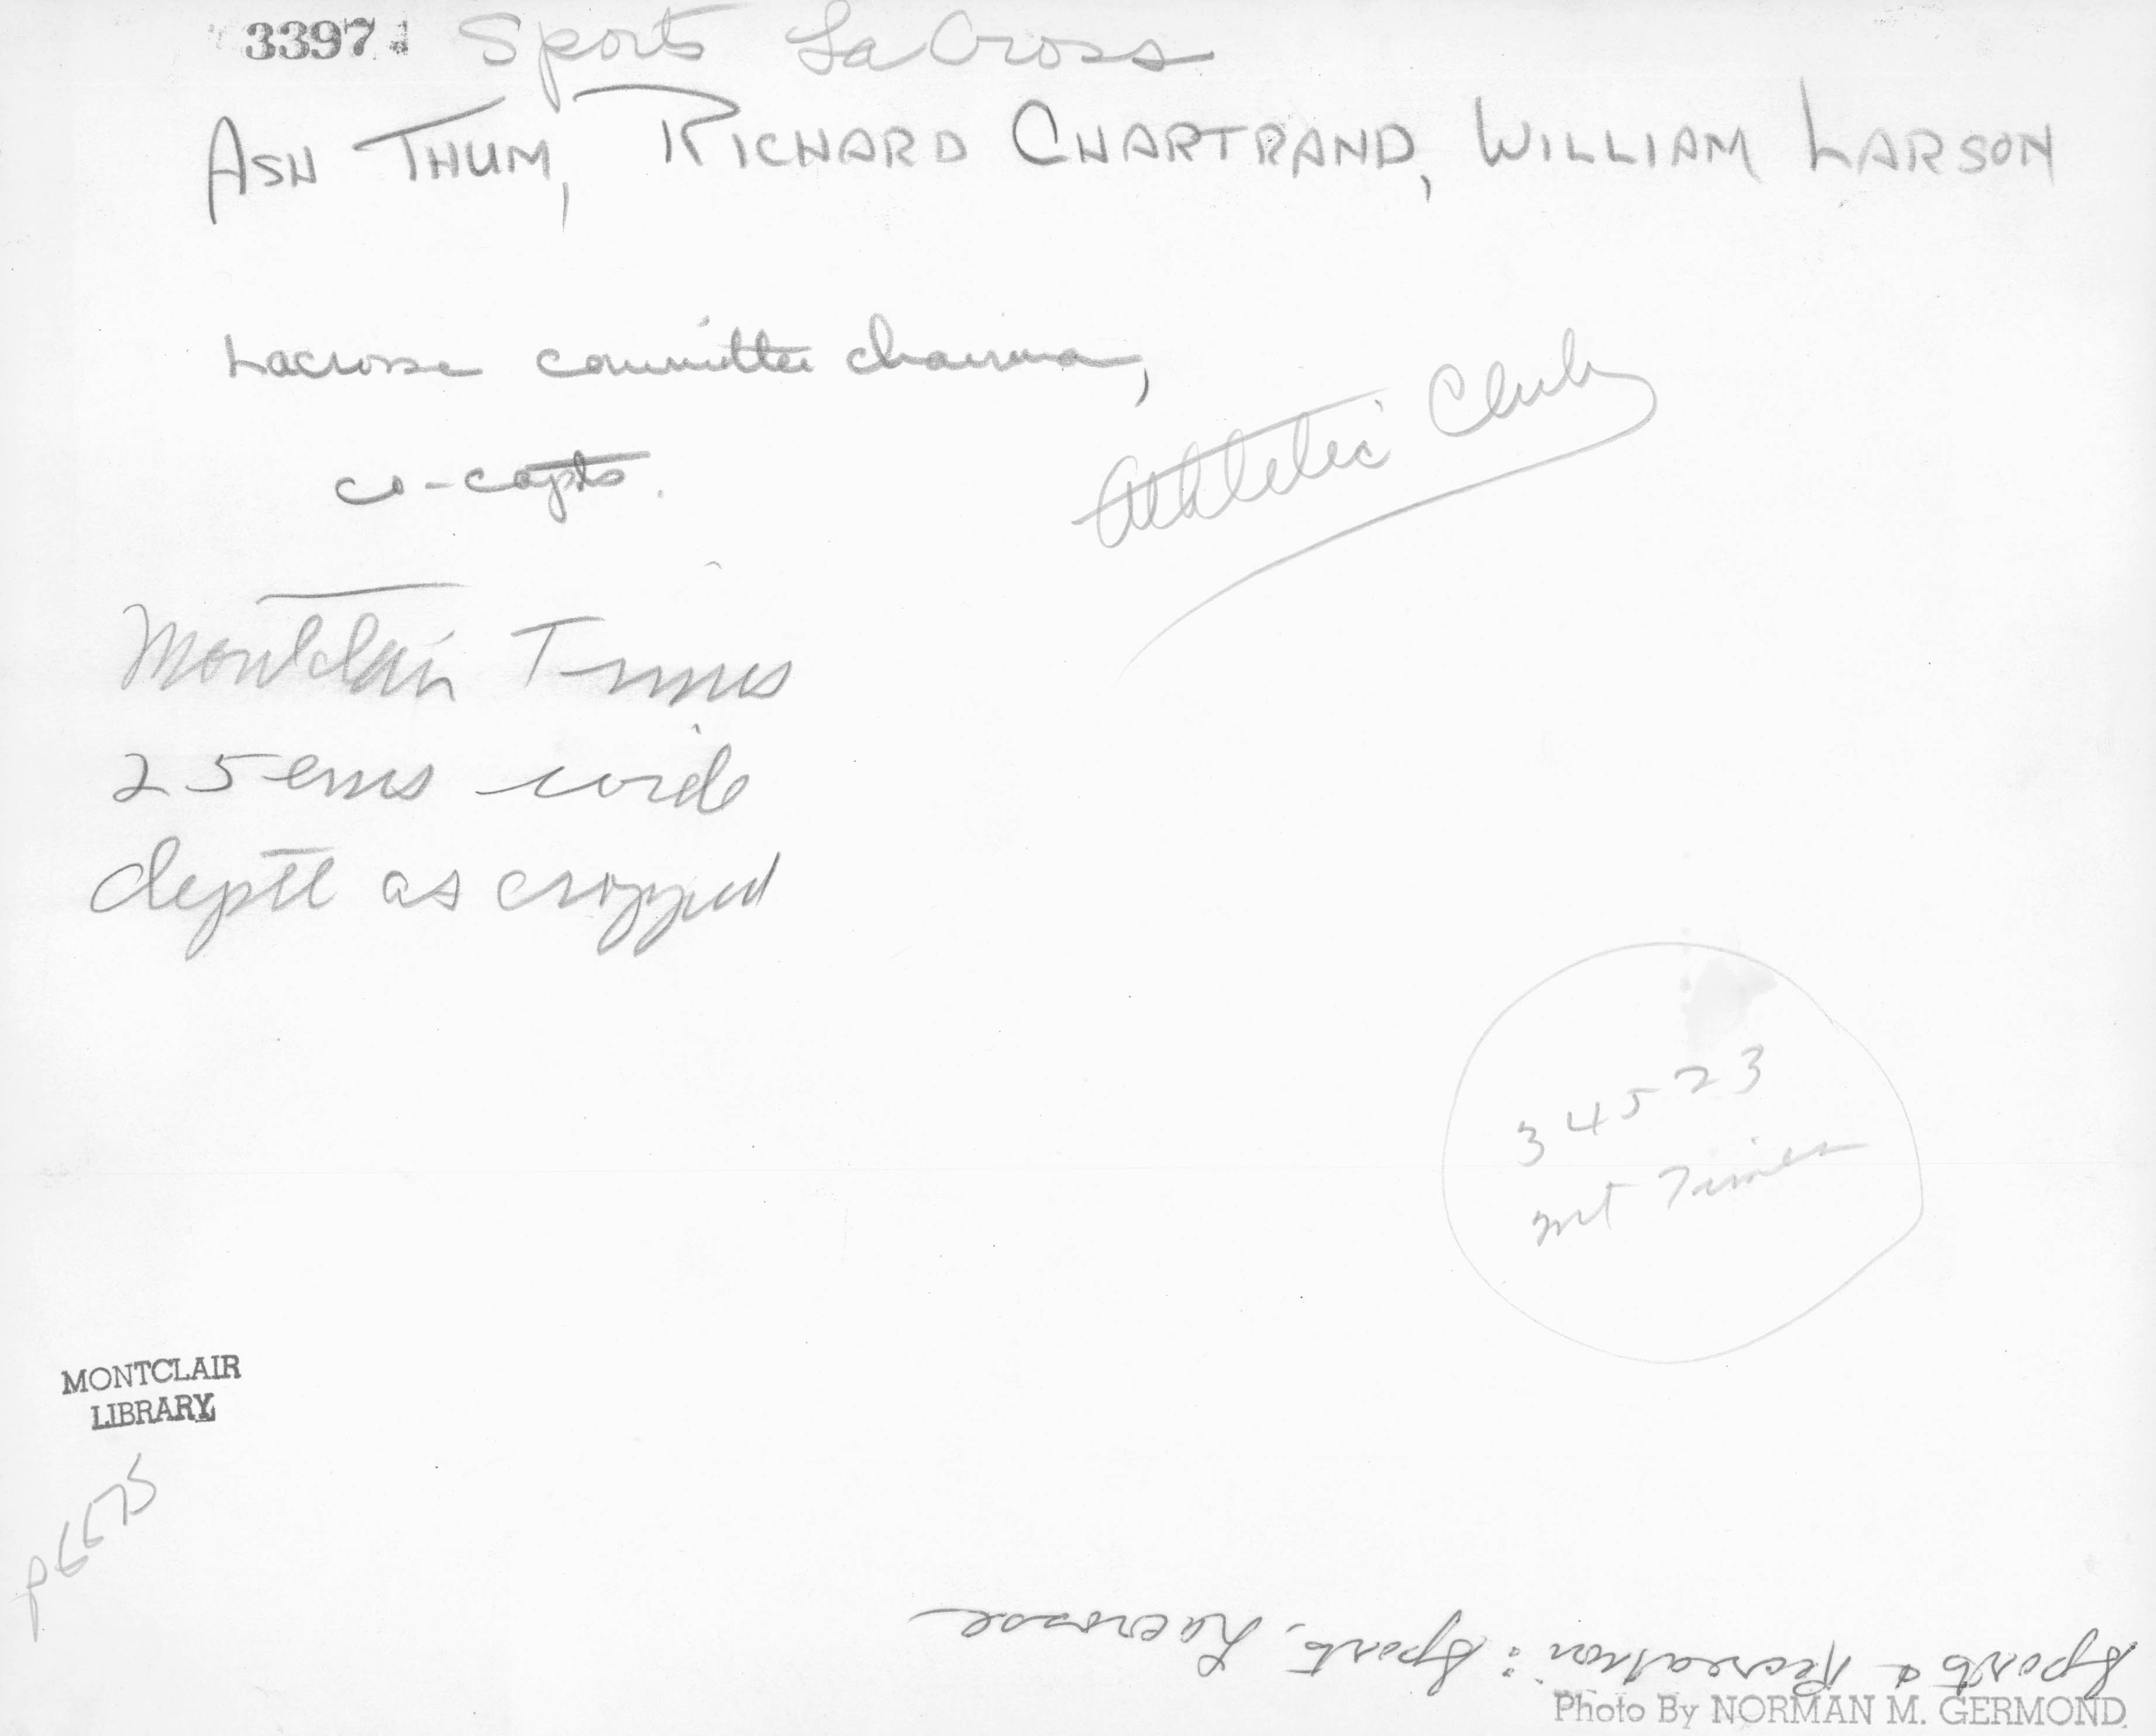 3397 Sports LaCross
ASH THUM, RICHARD CHARTRAND, WILLIAM LARSON
Lacrosse committee chairman,
co-capts.
Athletic Club
Montclair Times
25 ems wide
depth as cropped
34523
Mt Times
MONTCLAIR
LIBRARY
p6675
Sports & Recreation: Sports, Lacrosse
Photo By NORMAN M. GERMOND